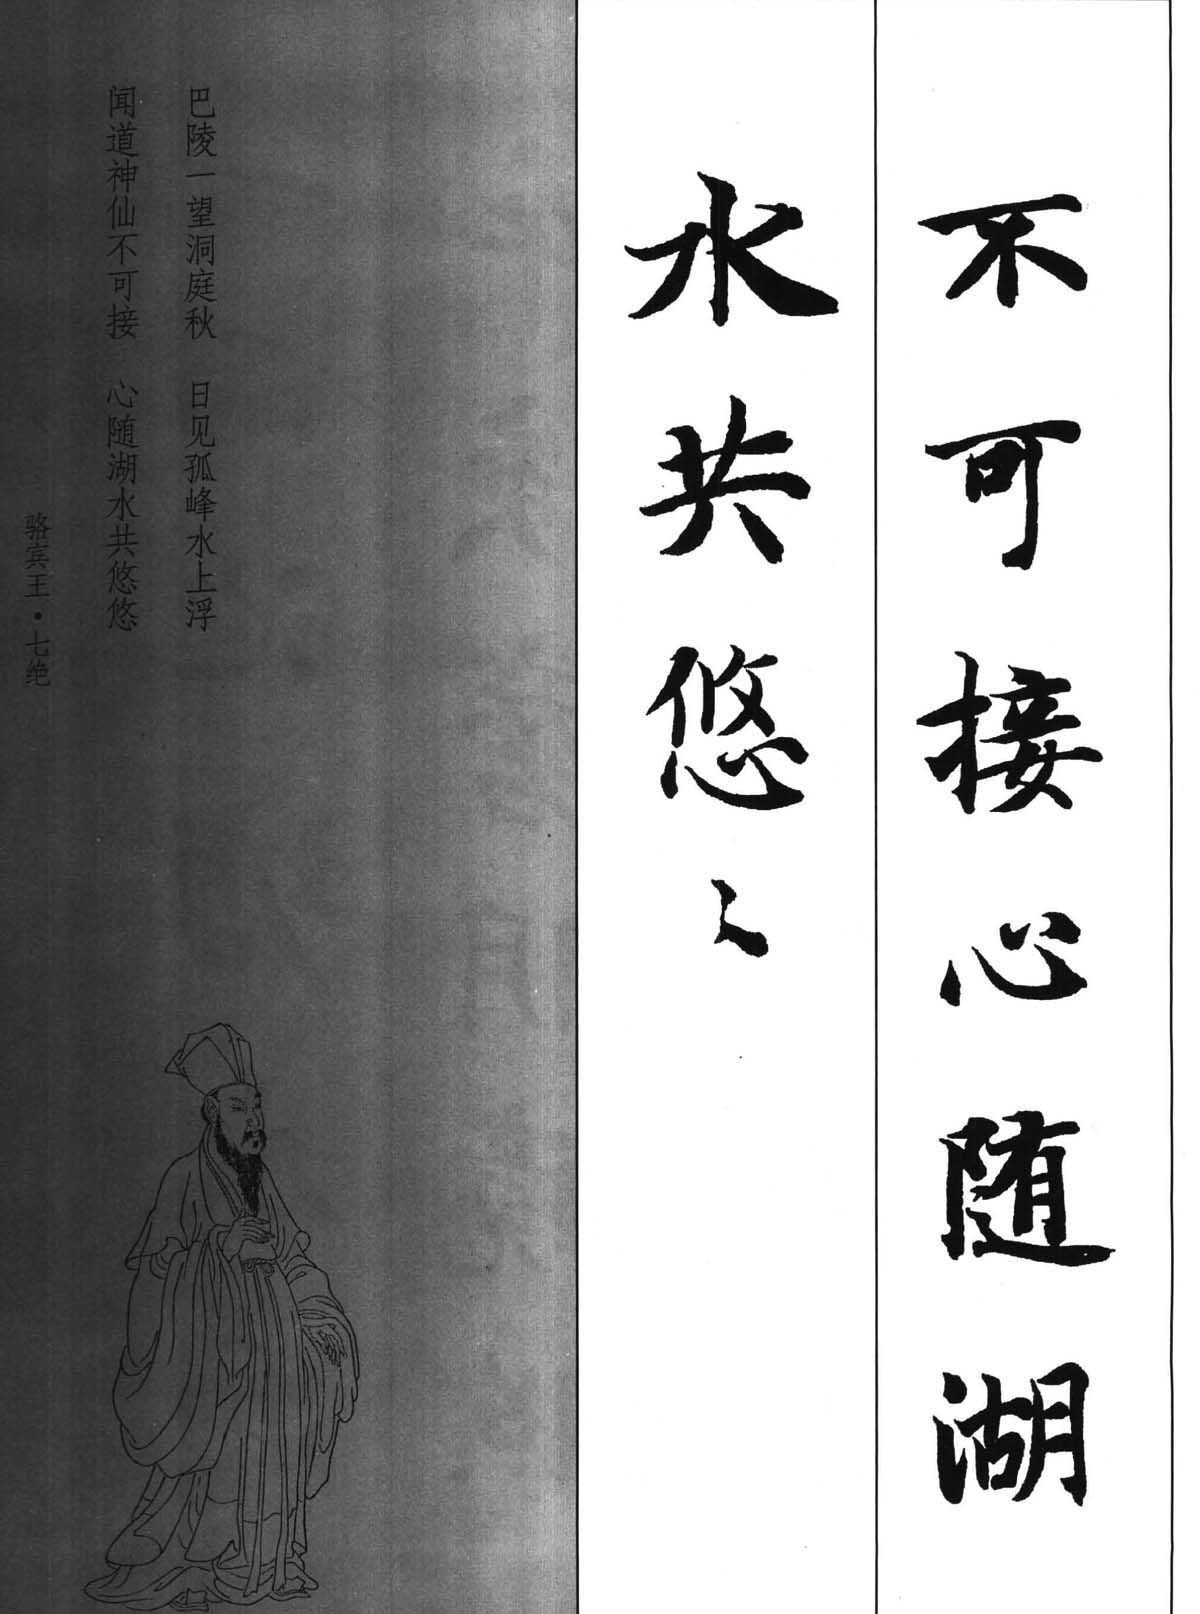 不可接心随湖
水共悠〻
巴陵一望洞庭秋　日见孤峰水上浮
闻道神仙不可接　心随湖水共悠悠
骆宾王·七绝